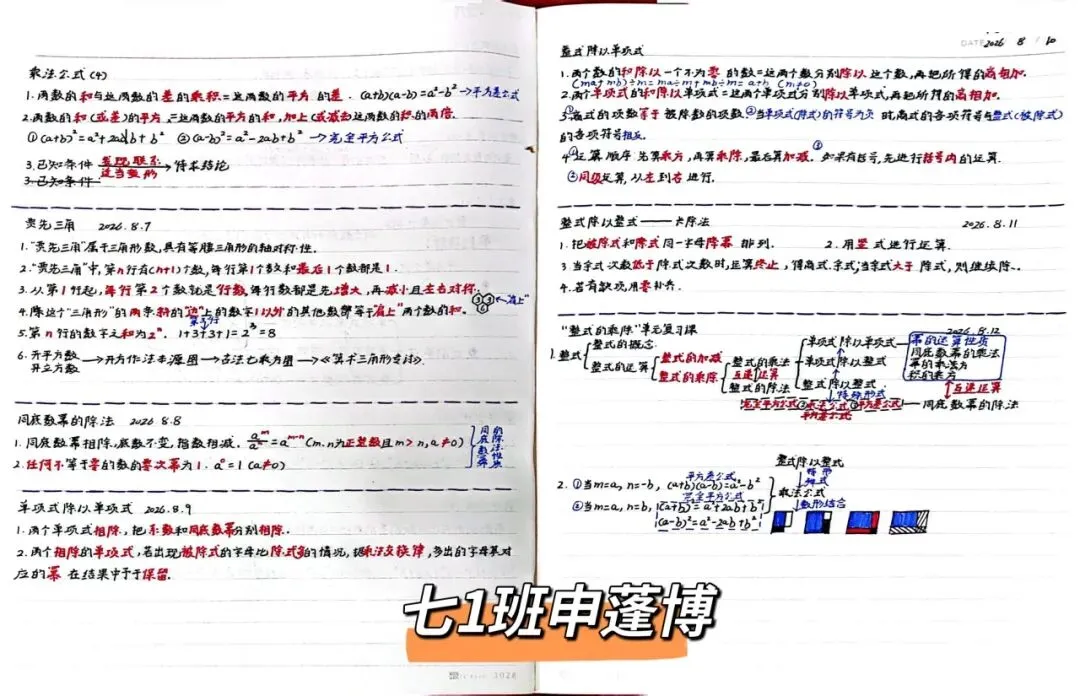 乘法公式(4)
1.两数的和与这两数的差的乘积=这两数的平方的差. (a+b)(a-b)=a²-b² →平方差公式
2.两数的和(或差)的平方,=这两数的平方的和,加上(或减去)这两数的积的两倍.
①(a+b)²=a²+2ab+b² ②(a-b)²=a²-2ab+b² →完全平方公式
3.已知条件 发现联系 适当变形 → 待求结论
3.已知条件.
贾先三角 2026.8.7
1."贾先三角"属于三角形数,具有等腰三角形的轴对称性.
2."贾先三角"中,第n行有(n+1)个数,每行第1个数和最后1个数都是1.
3.从第1行起,每行第2个数就是行数,每行数都是先增大,再减小且左右对称.
"肩上"
4.除这个"三角形"的两条斜的"边"上的数字1以外的其他数都等于"肩上"两个数的和.
第3行
5.第n行的数字之和为2ⁿ. 1+3+3+1=2³=8
6.开平方数 开立方数 →开方作法本源图→古法七乘方图→《算术三角形专论》
同底数幂的除法 2026.8.8
1.同底数幂相除,底数不变,指数相减. aᵐ/aⁿ=aᵐ⁻ⁿ(m.n为正整数且m>n,a≠0)
2.任何不等于零的数的零次幂为1. a⁰=1 (a≠0)
同底数幂的除法性质
单项式除以单项式 2026.8.9
1.两个单项式相除,把系数和同底数幂分别相除.
2.两个相除的单项式,若出现被除式的字母比除式多的情况,据乘法交换律,多出的字母其对
应的幂在结果中予于保留.
DATE 2026 8 / 10
整式除以单项式
1.两个数的和除以一个不为零的数=这两个数分别除以这个数,再把所得的商相加.
(ma+mb)÷m=ma÷m+mb÷m=a+b (m≠0)
2.两个单项式的和除以单项式=这两个单项式分别除以单项式,再把所得的商相加.
3.①商式的项数等于被除数的项数②当单项式(除式)的符号为负时,商式的各项符号与整式(被除式)
的各项符号相反.
4.①运算顺序:先算乘方,再算乘除,最后算加减.②如果有括号,先进行括号内的运算.
③同级运算,从左到右进行.
整式除以整式——大除法 2026.8.11
1.把被除式和除式同一字母降幂排列. 2.用竖式进行运算.
3.当余式次数低于除式次数时,运算终止,得商式.余式;当余式大于除式,则继续除.
4.若有缺项,用零补齐.
"整式的乘除"单元复习课 2026.8.12
1.整式
整式的概念
整式的运算
整式的加减
整式的乘除
整式的乘法
互逆运算
整式的除法
单项式除以单项式
单项式除以整式
整式除以整式
特殊形式
幂的运算性质
同底数幂的乘法
幂的乘方
积的乘方
互逆运算
同底数幂的除法
完全平方公式
平方差公式
整式除以整式
特殊形式
乘法公式
数形结合
平方差公式
2.①当m=a, n=-b, (a+b)(a-b)=a²-b²
完全平方公式
②当m=a, n=b, (a+b)²=a²+2ab+b²
(a-b)²=a²-2ab+b²
七1班申蓬博
3028